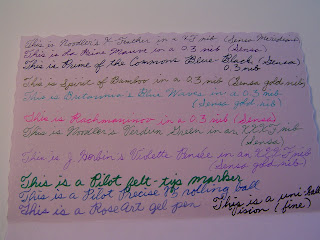 This is Noodler's X-Feather in a XF nib (Sensa Meridian)
This is La Reine Mauve in a 0.3 nib (Sensa)
This is Prime of the Commons Blue-Black (Sensa)
0.3 nib
This is Spirit of Bamboo in a 0.3 nib (Sensa gold nib)
This is Britannia's Blue Waves in a 0.3 nib
(Sensa gold nib)
This is Rachmaninov in a 0.3 nib (Sensa)
This is Noodler's Verdun Green in an XXXF nib
(Sensa)
This is J Herbin's Violette Pensée in an XXXF nib
(Sensa gold nib)
This is a Pilot felt-tip marker
This is a Pilot Precise V5 rolling ball
This is a RoseArt gel pen
This is a uni-ball
vision (fine)